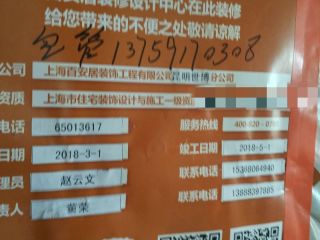 安居装修设计中心在此装修
给您带来的不便之处敬请谅解
包管 13759170308
公司 上海百安居装饰工程有限公司昆明世博分公司
资质 上海市住宅装饰设计与施工一级资
电话 65013617 服务热线 400-820-0
日期 2018-3-1 竣工日期 2018-5-1
理员 赵云文 联系电话 15368064940
责人 黄荣 联系电话 13888397885